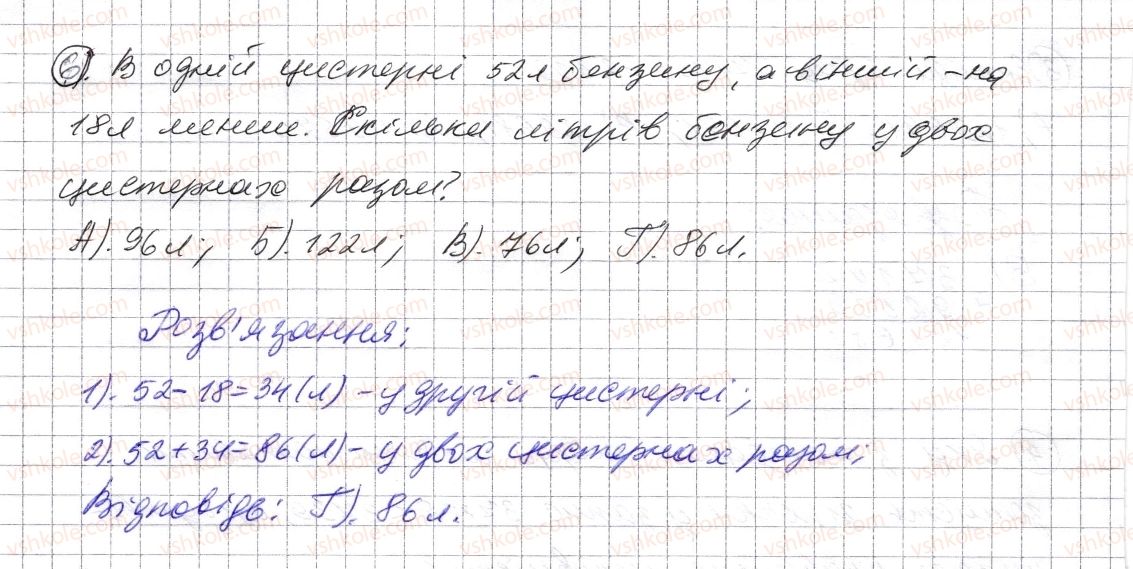 6). В одній цистерні 52л бензину, а в іншій – на
18л менше. Скільки літрів бензину у двох
цистернах разом?
А). 96л; Б). 122л; В). 76л; Г). 86л.
Розв'язання:
1). 52-18=34(л) - у другій цистерні;
2). 52+34=86(л) - у двох цистернах разом;
Відповідь: Г). 86л.